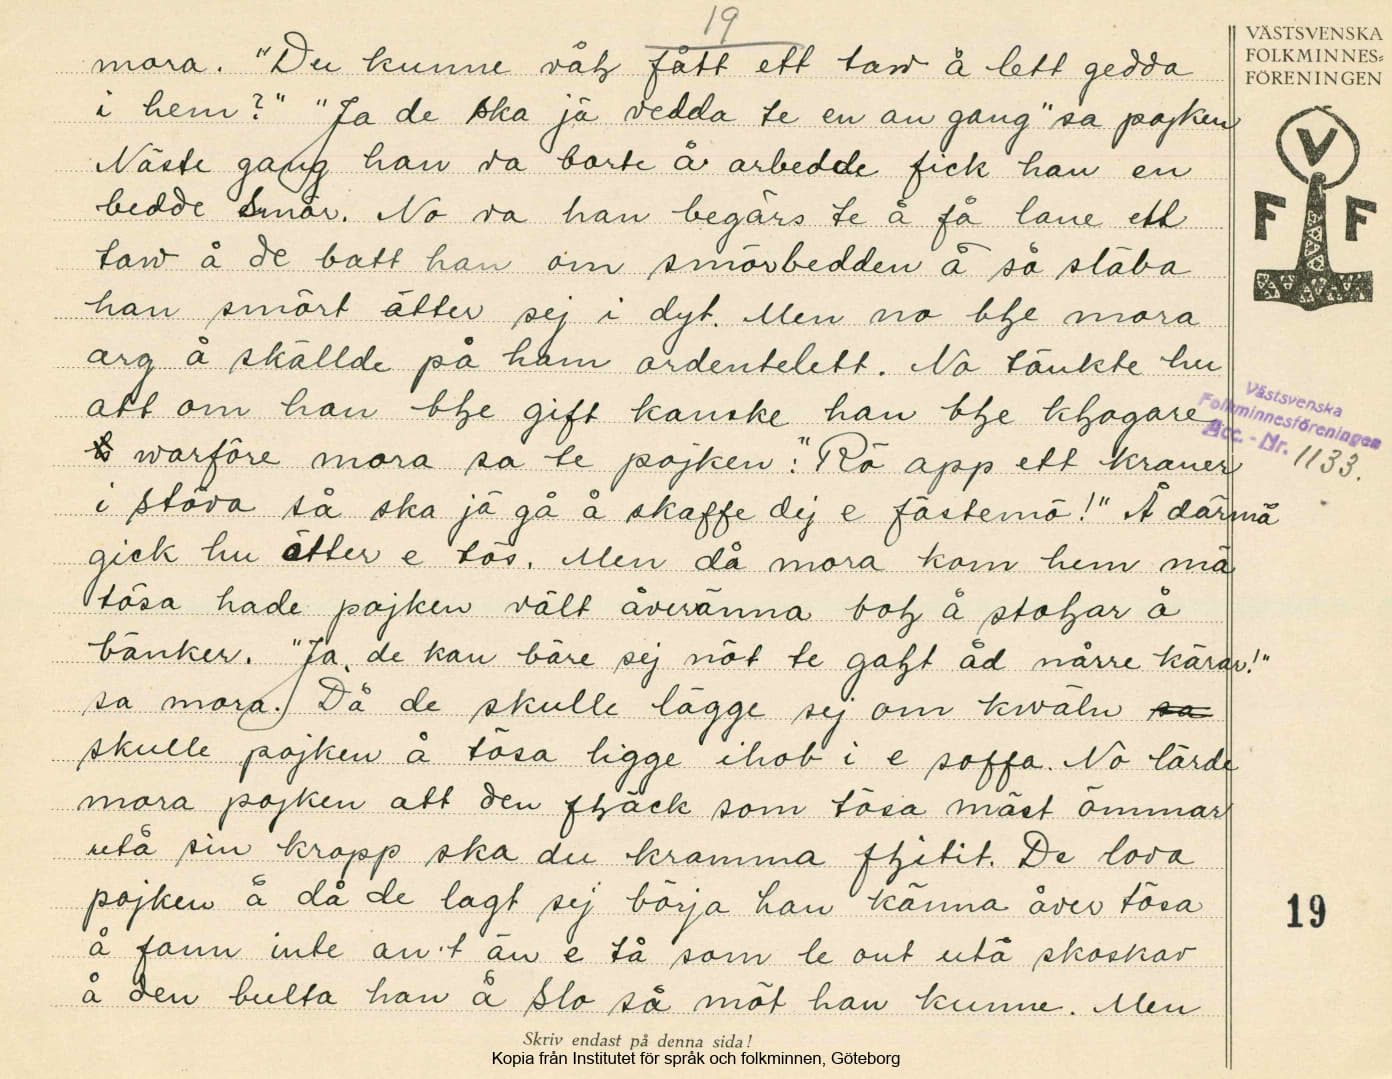 19
mora. "Du kunne våḷ fått ett taw å lett gedda
i hem?" "Ja de ska jä vedda te en an gang" sa pojken
Näste gang han va borte å arbedde fick han en
bedde smör. No va han begärs te å få lane ett
taw å de batt han om smörbedden å så släba
han smört ätter sej i dyt. Men no bḷe mora
arg å skällde på ham ordentelett. Nô tänkte hu
att om han bḷe gift kanske han bḷe kḷogare
warföre mora sa te pojken: "Rö app ett kraner
i stöva så ska jä gå å skaffe dej e fästemö!" Å därmä
gick hu ätter e tös. Men då mora kom hem mä
tösa hade pojken vält överänna boḷ å stoḷar å
bänker. "Ja, de kan bäre sej nöt te gaḷt åd nårre kärar!"
sa mora. Då de skulle lägge sej om kwäln sa
skulle pojken å tösa ligge ihob i e soffa. Nô lärde
mora pojken att den fḷäck som tösa mäst ömmar
utå sin kropp ska du kramma fḷitit. De lova
pojken å då de lagt sej börja han känna åver tösa
å fann inte an't än e tå som le ont utå skoskav
å den bulta han å slo så möt han kunne. Men
VÄSTSVENSKA
FOLKMINNES=
FÖRENINGEN
V
F F
Västsvenska
Folkminnesföreningen
Acc. - Nr. 1133.
19
Skriv endast på denna sida!
Kopia från Institutet för språk och folkminnen, Göteborg